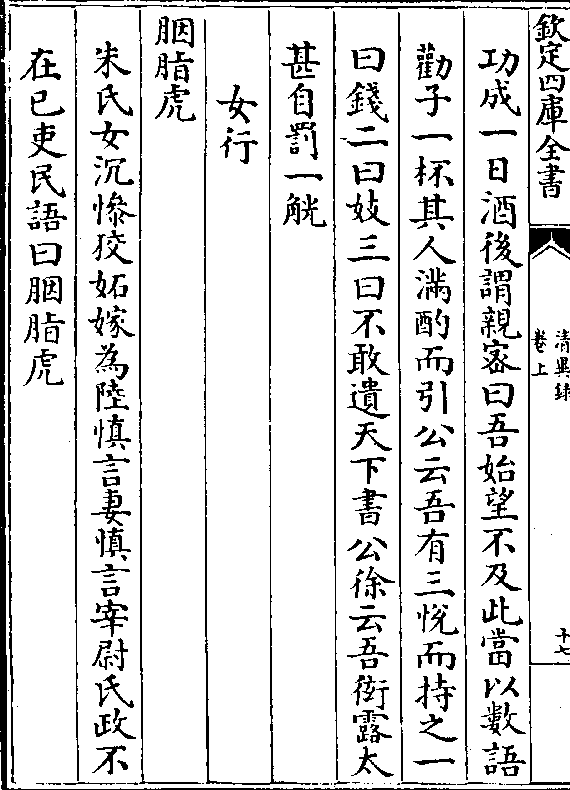 欽定四庫全書
清異錄
卷上
十七
功成一日酒後謂親密曰吾始望不及此當以數語
勸子一杯其人滿酌而引公云吾有三悅而持之一
曰錢二曰妓三曰不敢遺天下書公徐云吾衒露太
甚自罰一觥
女行
胭脂虎
朱氏女沉慘狡妬嫁為陸慎言妻慎言宰尉氏政不
在己吏民語曰胭脂虎